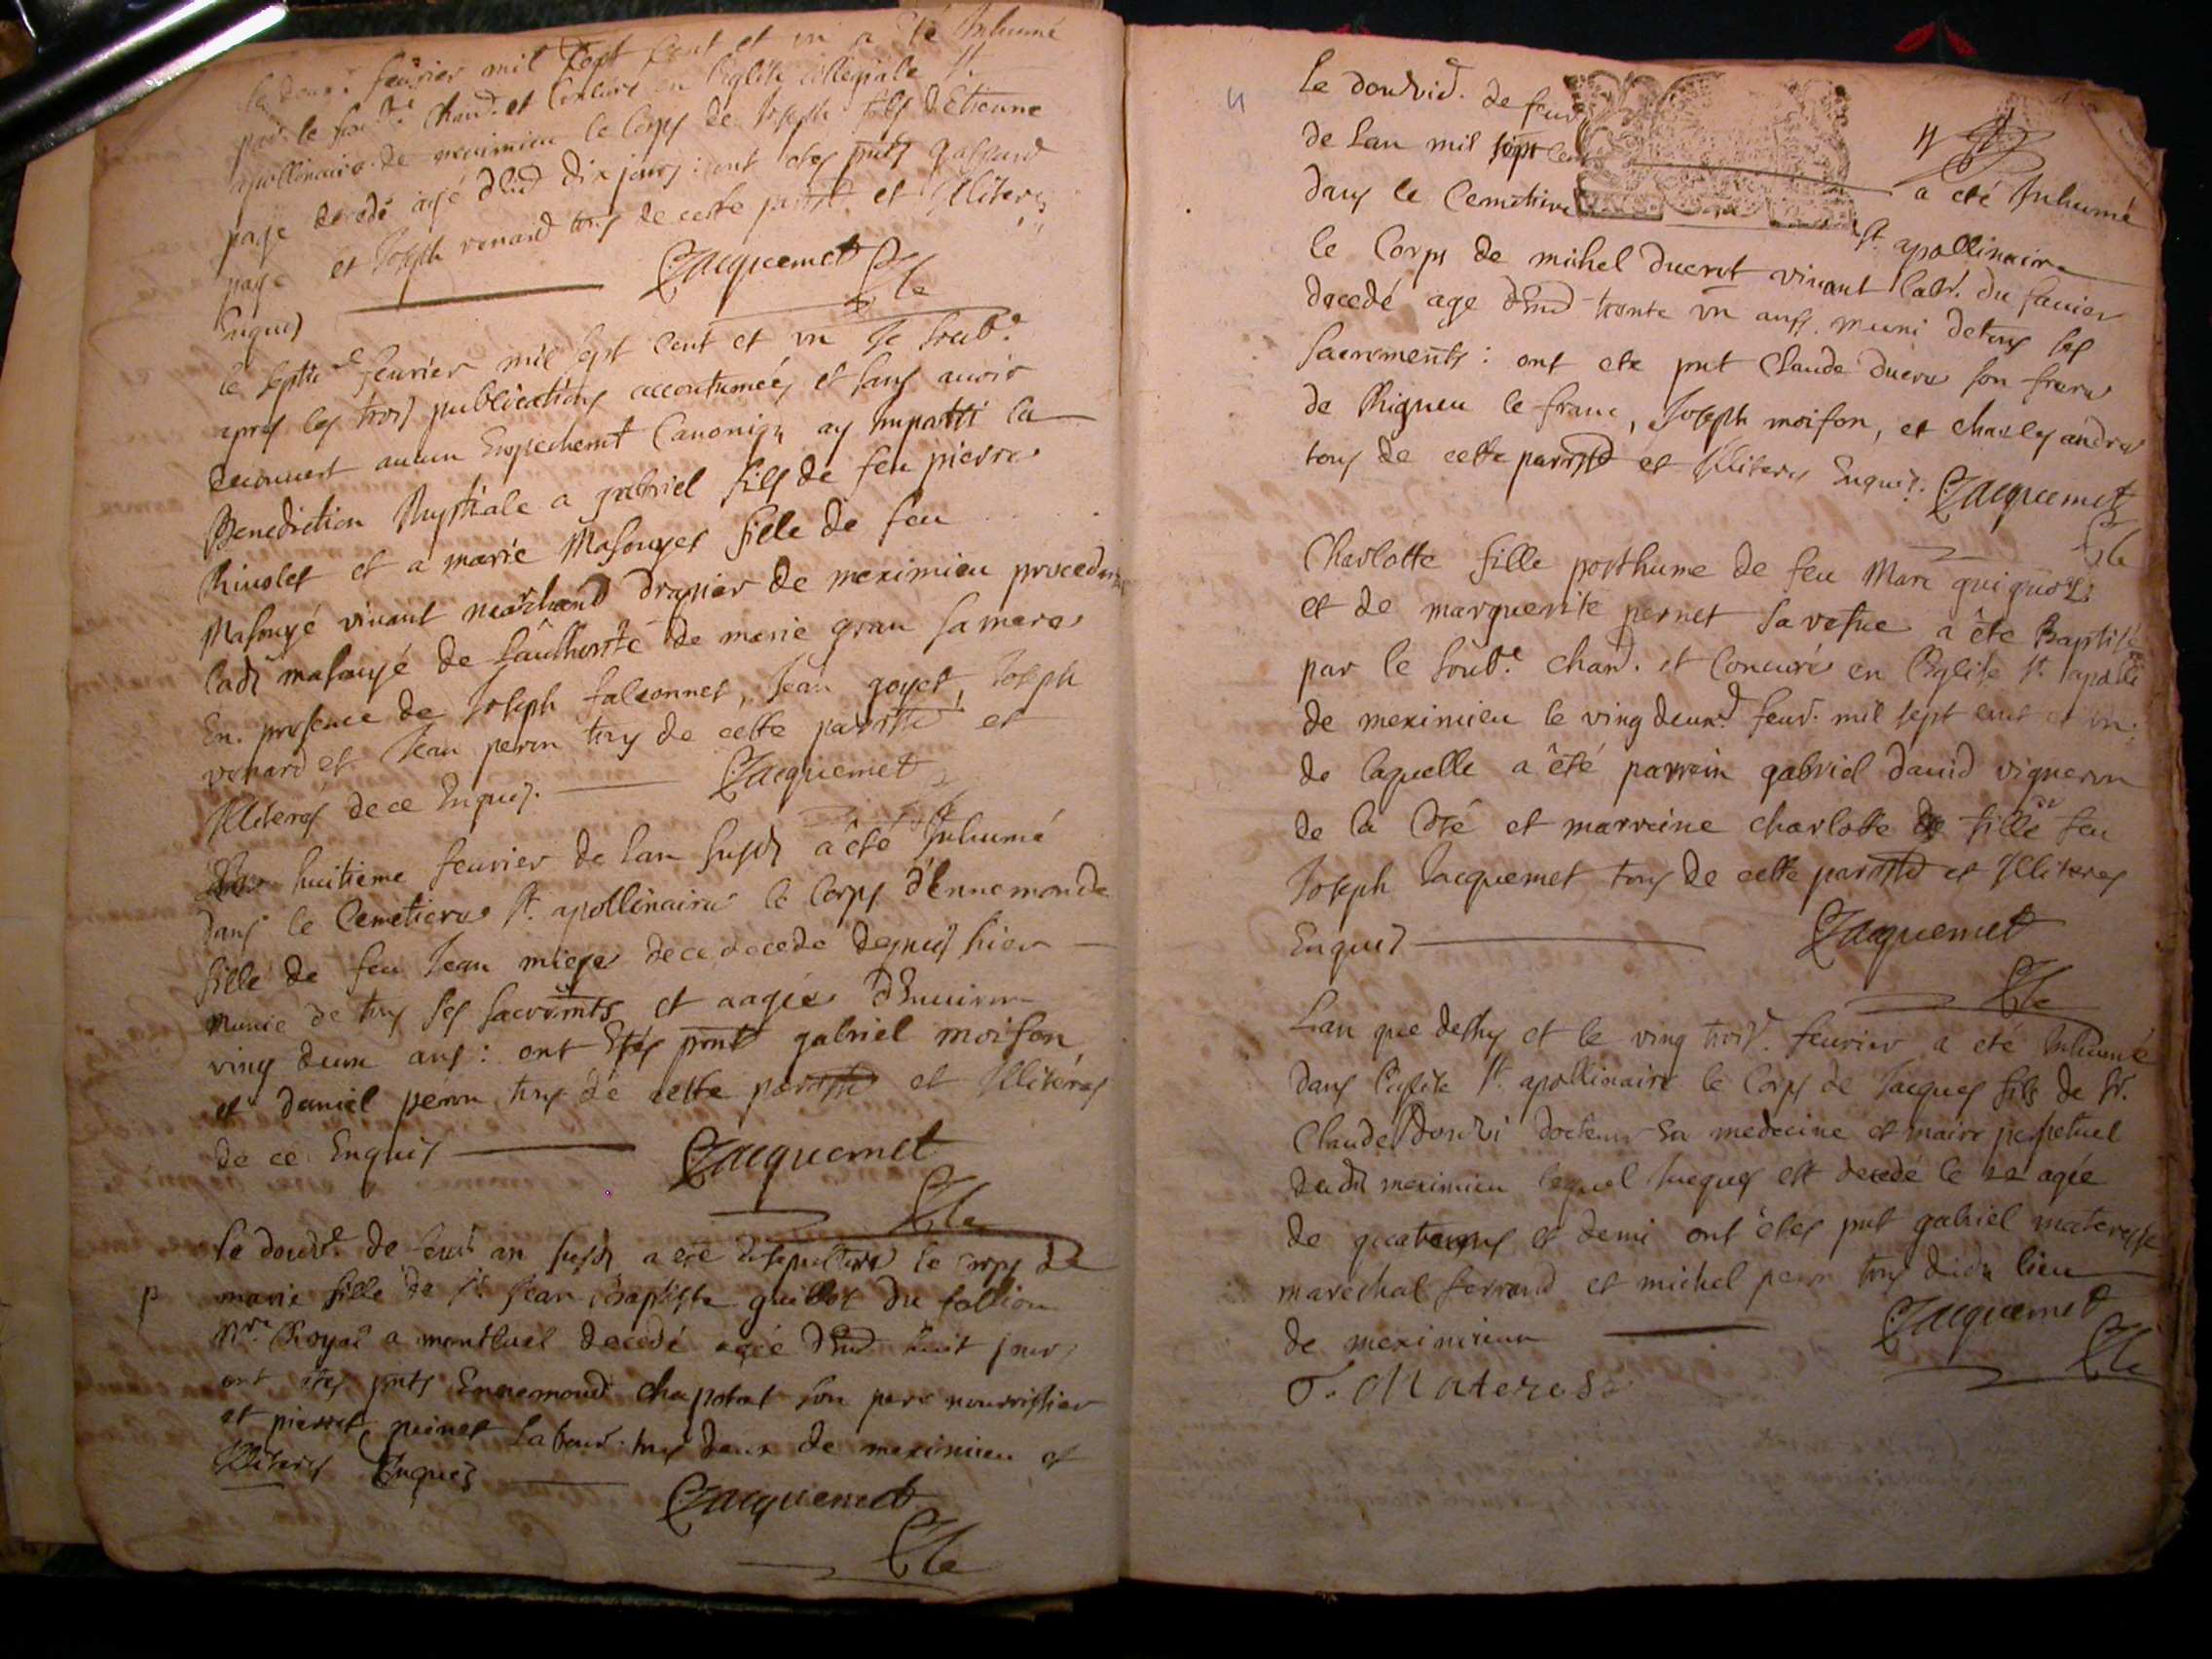 le deux.e feurier mil sept cent et vn a été Inhumé
par le soub.é chan.e et Concuré en l'Eglise collegiale St.
apollinaire de meximieu le Corps de Joseph fils d'Etienne
page decedé agé d'Env dix jours: ont etes pnts gaspard
page et Joseph renard tous de cette parsse et Illiteres
Enquis Jacquemet
le septie.e feurier mil sept cent et vn Je soub.é
apres les trois publications accoutumées et sans auoir
decouuert aucun Empechemt Canoniq. ay Imparti la
Benediction Nuptiale a gabriel fils de feu pierre
Riuolet et a marie Masouyer fille de feu
Masouyé viuant marchand drapier de meximieu procedante
lad. masouyé de l'authorité de marie grau sa mere
En presence de Joseph falconnet, Jean goyet, Joseph
renard et Jean peron tous de cette parsse et
Illiteres de ce Enquis. Jacquemet
huitieme feurier de l'an susd. a été Inhumé
dans le Cemetiere St. apollinaire le Corps d'Ennemonde
fille de feu Jean miege decedede depuis hier
munie de tous ses sacremnts et aagée d'Enuiron
ving deux ans: ont Etés pnnt gabriel moison
et daniel peron tous de cette parsse et Illiterés
de ce Enquis Jacquemet
le douz.e de feur. an susd. a été Ensepulturé le corps de
p marie fille de Sr. Jean Baptiste guillot du follion
Nre. Royal a montluel decedé agée d'Env huit jours
ont etes pnts Ennemond chapotat son pere nourrissier
et pierre guinet Labour. tous deux de meximieu et
Illiteres Enquis Jacquemet
4
Le douzie. de feur.
de Lan mil sept cent a été Inhumé
dans le Cemetiere St. apollinaire
le Corps de michel ducret viuant lab.r du fauier
decedé age d'Env trente vn ans, muni de tous ses
sacrements: ont ete pnt Claude ducret son frere
de Rigneu le franc, Joseph moison, et charles andre
tous de cette parsse et Illiteres Enquis. Jacquemet
Charlotte fille posthume de feu Marc guiguo
et de marguerite pernet sa vefue a été Baptisé
par le soub.é chan. et Concuré en l'Eglise St. apolli
de meximieu le ving deux.e feur. mil sept cent et vn:
de laquelle a été parrein gabriel dauid vigneron
de la Cté et marreine charlotte fille de feu
Joseph Jacquemet tous de cette parsse et Illiteres
Enquis Jacquemet
L'an que dessus et le ving trois.e feurier a été Inhumé
dans l'Eglise St. apollinaire le Corps de Jacques fils de Sr.
Claude docteur En medecine et maire perpetuel
dudt meximieu lequel Jacques est decedé le 22 agée
de quatre ans et demi ont étes pnt gabriel materesse
marechal ferrand et michel peron tous dudt lieu
de meximieux Jacquemet
G. Materese